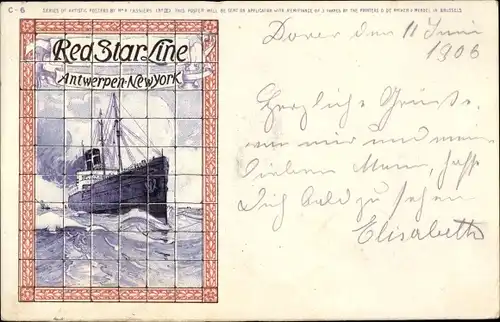 C-6 SERIES OF ARTISTIC POSTERS BY Mr H. CASSIERS THIS POSTER WILL BE SENT ON APPLICATION WITH REMITTANCE OF 3 FRANCS BY THE PRINTERS O. DE RYCKER & MENDEL IN BRUSSELS
Red Star Line
Antwerpen-New York
Dover den 11 Juni
1906
Herzliche Grüße,
von mir und mein
lieben Mann, hoffe
Dich bald zu sehen
Elisabeth